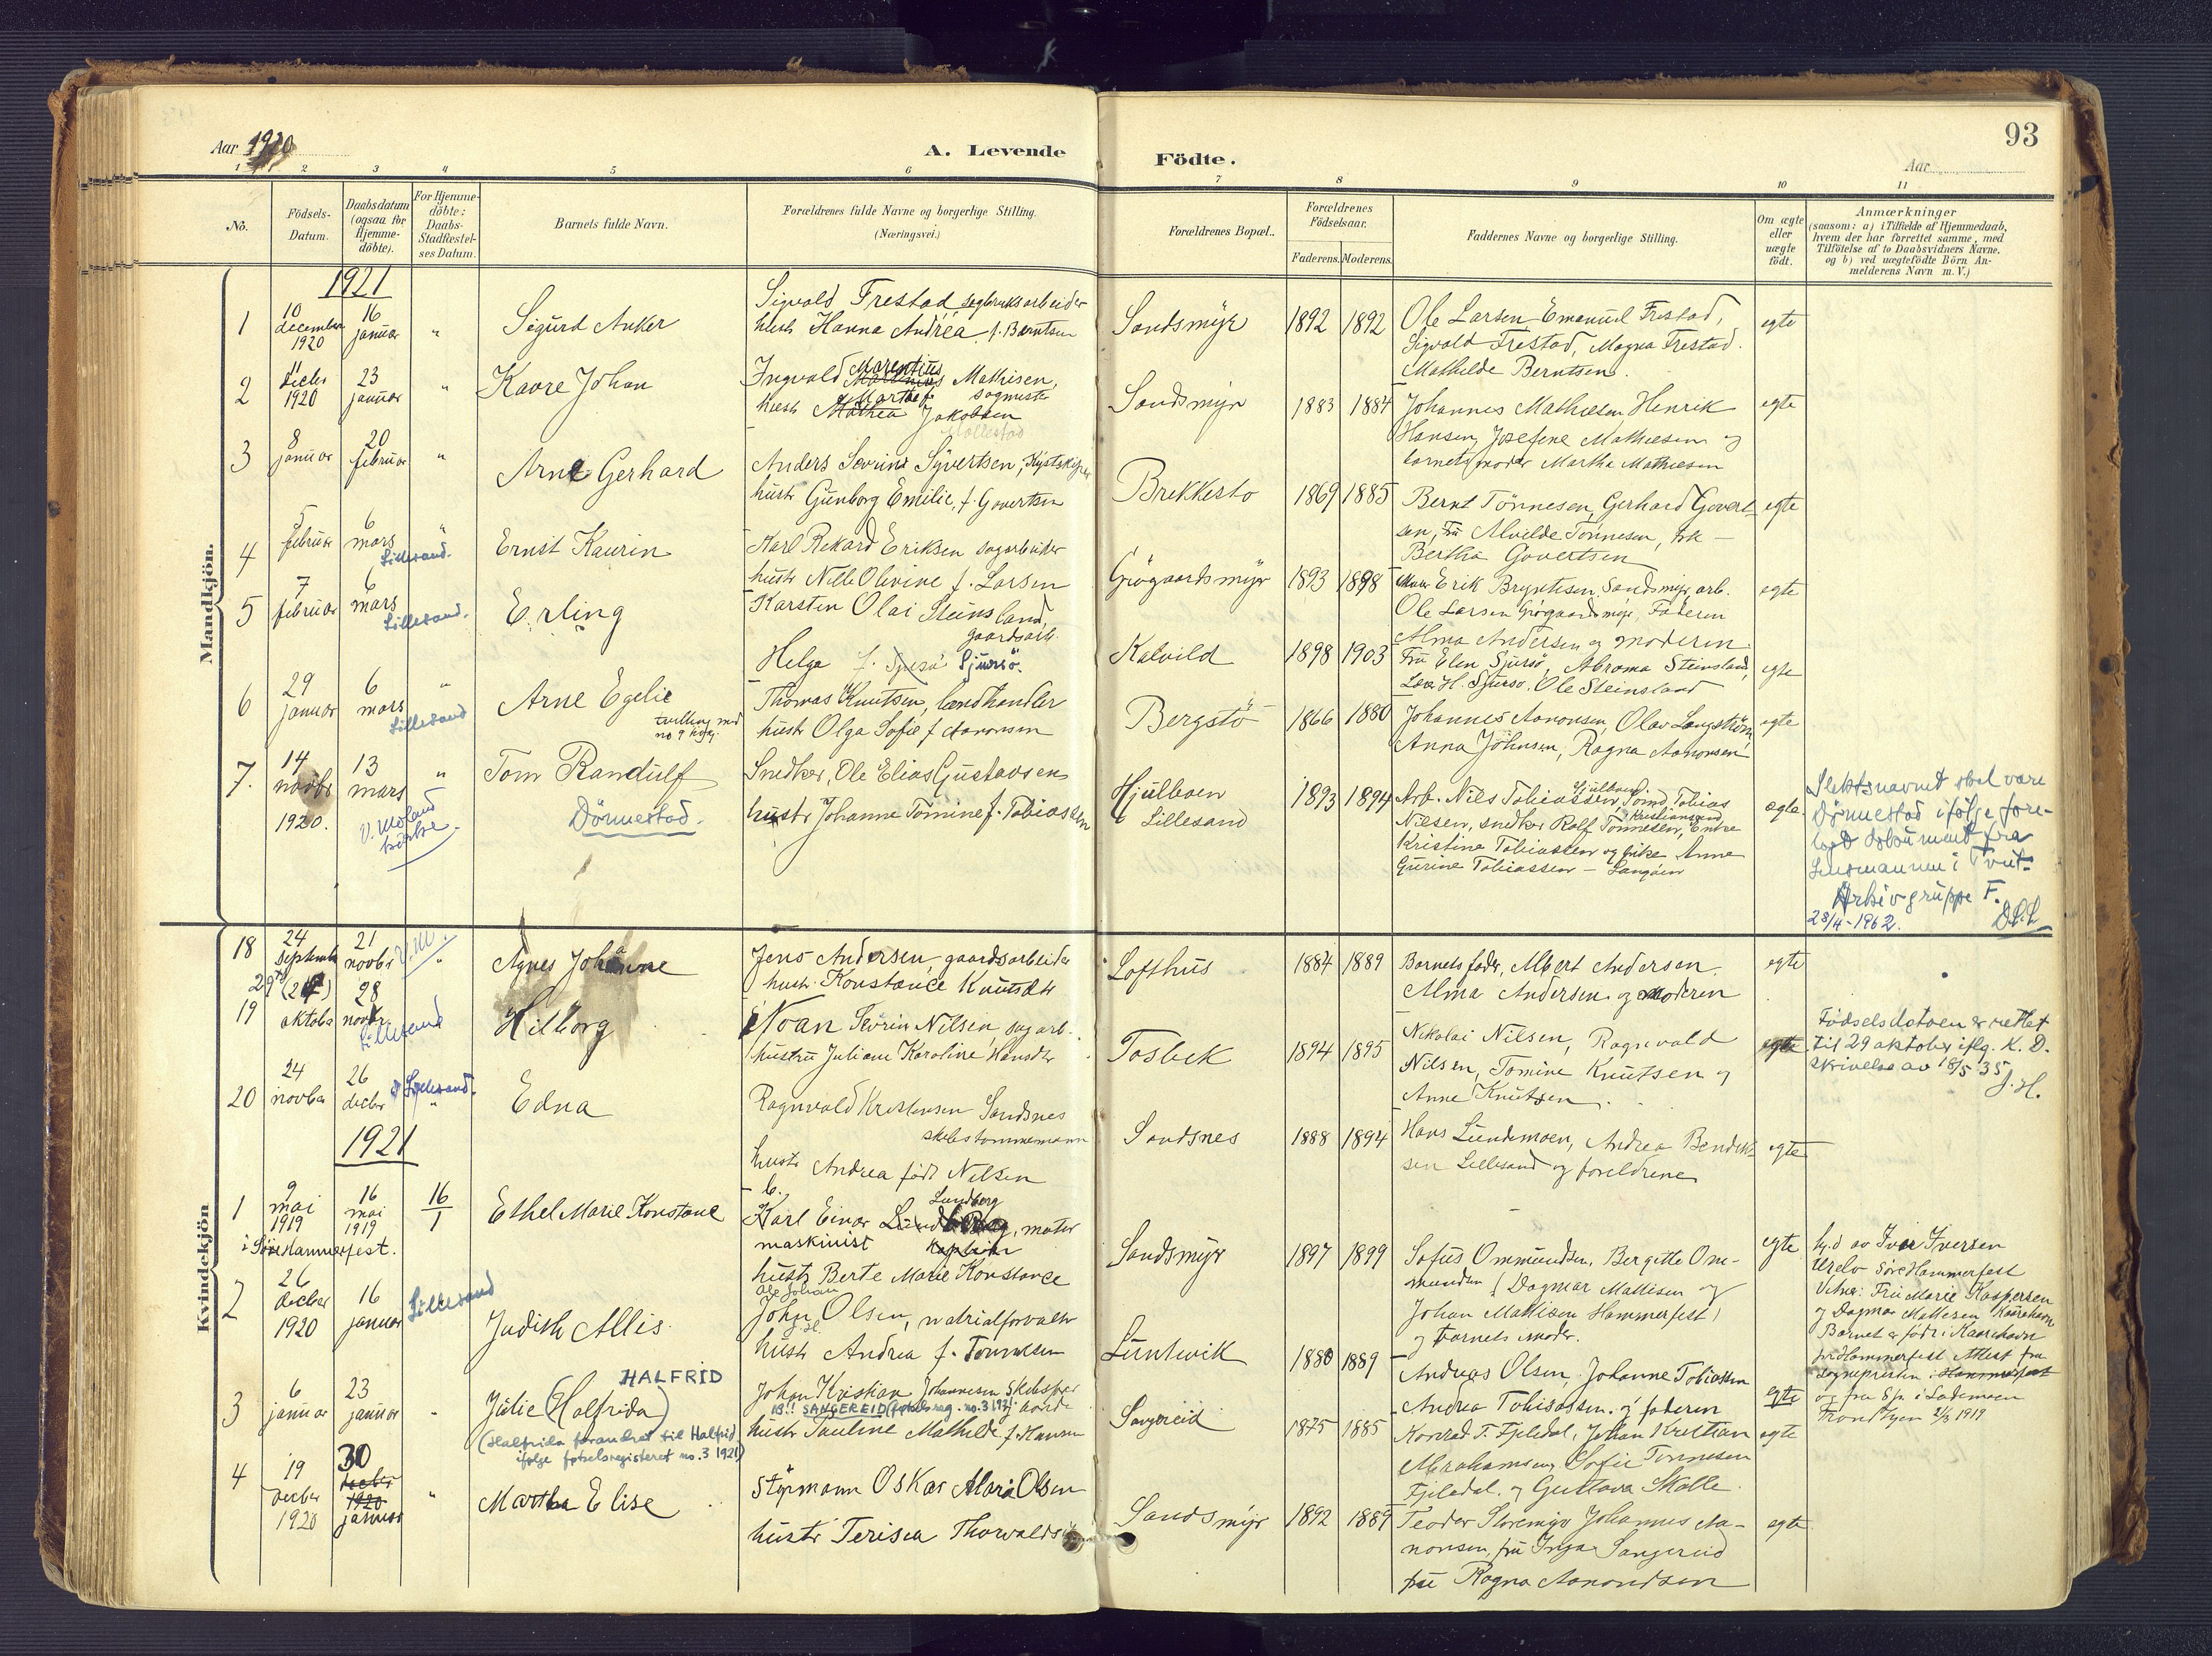 Aar 1920
A. Levende Födte.
93
Aar
1 2 3 4 5 6 7 8 9 10 11
No.
Födsels-
Datum.
Daabsdatum
(ogsaa for
Hjemme-
döbte).
For Hjemme-
döbte:
Daabs-
Stadfestel-
ses Datum.
Barnets fulde Navn.
Forældrenes fulde Navne og borgerlige Stilling.
(Næringsvei.)
Forældrenes Bopæl..
Forældrenes
Födselsaar.
Faderens. Moderens.
Faddernes Navne og borgerlige Stilling.
Om ægte
eller
uægte
födt.
Anmærkninger
(saasom: a) i Tilfælde af Hjemmedaab,
hvem der har forrettet samme, med
Tilföielse af to Daabsvidners Navne.
og b) ved uægtefödte Börn An-
melderens Navn m. V.)
Mandkjön.
1921
1
10
december
1920
16
januar
"
Sigurd Anker
Sigvald Frestad, sagbruksarbeider
hustr Hanna Andréa f. Berntsen
Sandsmyr
1892 1892
Ole Larsen Emanuel Frestad,
Sigvald Frestad, Magna Frestad.
Mathilde Berntsen.
egte
2
11
decbr
1920
23
januar
"
Kaare Johan
Ingvald Marentius Mathisen,
sagmester
hustr Martha f. Jakobsen
Mollestad
Sandsmyr
1883 1884
Johannes Mathiesen Henrik
Hansen, Josefine Mathiesen og
barnets moder Martha Mathiesen
egte
3
8
januar
20
februar
"
Arne Gerhard
Anders Severin Syvertsen, Kystskipper
hustr Gunborg Emilie, f. Govertsen
Brekkestø
1869 1885
Bernt Tönnesen, Gerhard Govert-
sen, Fru Alvilde Tönnesen, frk
Bertha Govertsen
egte
4
5
februar
6
mars
"
Lillesand.
Ernst Kaurin
Karl Rekard Eriksen sagarbeider
hustr Nilli Olivine f. Larsen
Grøgaardsmyr
1893 1898
Erik Bryntesen Sandsmyr, arb.
Ole Larsen Grøgaardsmyr, Faderen
Alma Andersen og moderen.
egte
5
7
februar
6
mars
Lillesand.
Erling
Karsten Olai Steinsland,
gaardsarb.
Helga f. Sjursö.
Kalvild
1898 1903
Fru Elen Sjursö, Abroma Steinsland,
Lars H. Sjursö, Ole Steinsland
egte
6
29
januar
6
mars
"
Lillesand
Arne Egelie
tvilling med
no 9
Thomas Knutsen, landhandler
hustr Olga Sofie f Aaronsen
Bergstö
1866 1880
Johannes Aaronsen, Olav Langström,
Anna Johnsen, Ragna Aaronsen
egte
7.
14
novbr
1920.
13
mars
"
V. Moland
kirke.
Tom Randulf
Dönnestad.
Snedker, Ole Elias Gustavsen
hustr Johanne Tomine f. Tobiassen
Hjulboen
Lillesand
1893 1894
Arb. Nils Tobiassen, Hjulboen, Tobias
Nilsen, snedker Rolf Tönnesen, Kristianssand, Enke
Kristine Tobiassen og frike Anne
Gurine Tobiassen – Langöen
egte.
Slektsnavnet skal vare
Dönnestad ifölge fore-
lagt dokument fra
Lensmannen i Tveit.
Arkivgruppe F.
28/4-1962.
Kvindekjön
18
24
September
21
novbr
V. M.
"
Agnes Johanne
Jens Andersen gaardsarbeider
hustr. Konstance Knutsdtr
Lofthus
1884 1889
Barnets fader, Albert Andersen.
Alma Andersen og moderen
egte
19
29
oktober
28
novbr
Lillesand
Hilborg
Noan Severin Nilsen, sagarb.
hustru Juliane Karoline, Hansdtr
Tosbek
1894 1895
Nikolai Nilsen, Ragnvald
Nilsen, Tomine Knutsen og
Anne Knutsen.
egte
Födselsdatoen er rettet
til 29 oktober iflg. K. D.
skrivelse av 18/5 35
J. H.
20
24
novber
26
decbr
Lillesand.
"
Edna
Ragnvald Kristensen Sandsnes
skibstømmermann
hustr Andrea född Nilsen
Sandsnes
1888 1894
Hans Lundemoen, Andrea Bendik-
sen Lillesand og foreldrene
egte
1921
1
9
mai
1919
i Söre Hammerfest.
16
mai
1919
16
1
Ethel Marie Konstanse
Karl Einar Lundberg, motor
maskinist
hustr Berte Marie Konstance
Sandsmyr
1897 1899
Sofus Ommundsen, Bergitte Om-
mundsen (Dagmar Mathisen og
Johan Mathisen Hammerfest)
og barnets moder.
egte
hj.d av Iver Iversen
Sörehammerfest
Vitner: Fru Marie Kaspersen
og Dagmar Mathisen Kaarehavn
Barnet er född i Kaarehavn
Hammerfest Attest fra
sogneprësten i Hammerfest
og fra Spr i Lademoen
Trondhjem 2/3 1919
2
26
decber
1920
16
januar
Lillesand
Judith Allis.
Ole Johan
John Olsen, matrialforvalter
hustr Andrea f. Tönnesen
Luntevik
1880 1889
Andreas Olsen, Johanne Tobiassen
Andrea Tobiassen og faderen
egte
3
6
januar
23
januar
"
HALFRID
Julie (Halfrida)
(Halfrida forandret til Halfrid
ifölge födselsregisteret no. 3 1921)
Johan Kristian Johannesen Skibsfører
NB!! SANGEREID (fødselsreg. no. 3 1921)
hustr Pauline Mathilde f. Hansen
Sangereid
1875 1885
Konrad T. Fjeldal, Johan Kristian
Abrahamsen, Sofie Tönnesen
Fjeldal. og Gustava Skolle.
egte
4
19
decber
1920
30
decber
1920
januar
"
Martha Elise
Styrmann Oskar Maria Olsen
hustr Terisea Thorvaldsen
Sandsmyr
1892 1889
Teodor Storemyr Johannes Aa-
nonsen, fru Inga Sangereid
fru Ragna Aanondsen
egte